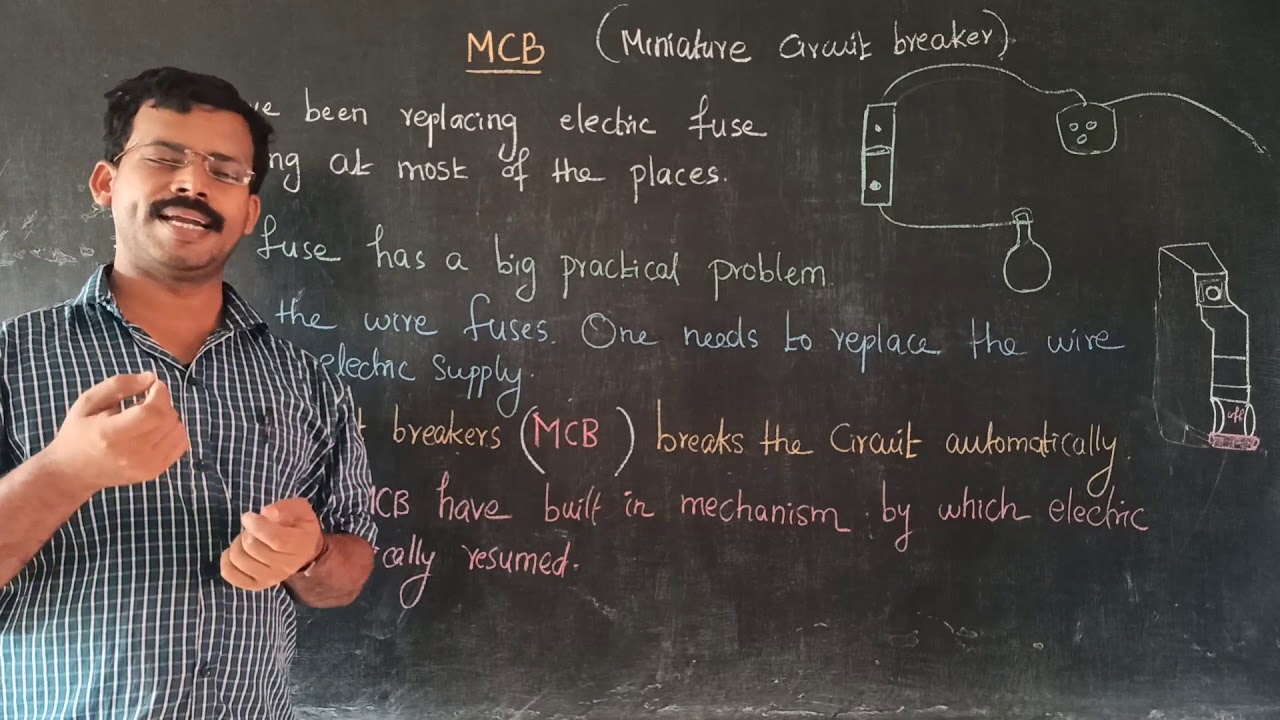 MCB (Miniature Circuit breaker).
ve been replacing electric fuse
ng at most of the places.
fuse has a big practical problem.
the wire fuses. One needs to replace the wire
electric supply.
t breakers (MCB) breaks the Circuit automatically.
MCB have built in mechanism by which electric
cally resumed.
off